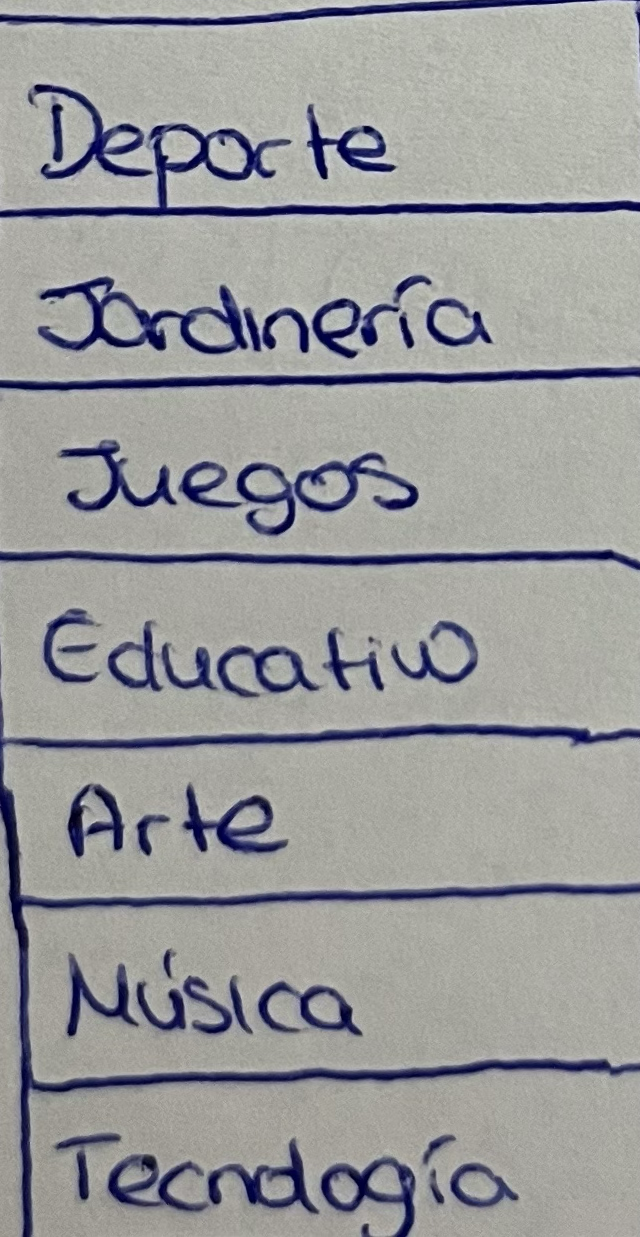 Deporte
Jardinería
Juegos
Educativo
Arte
Música
Tecnología